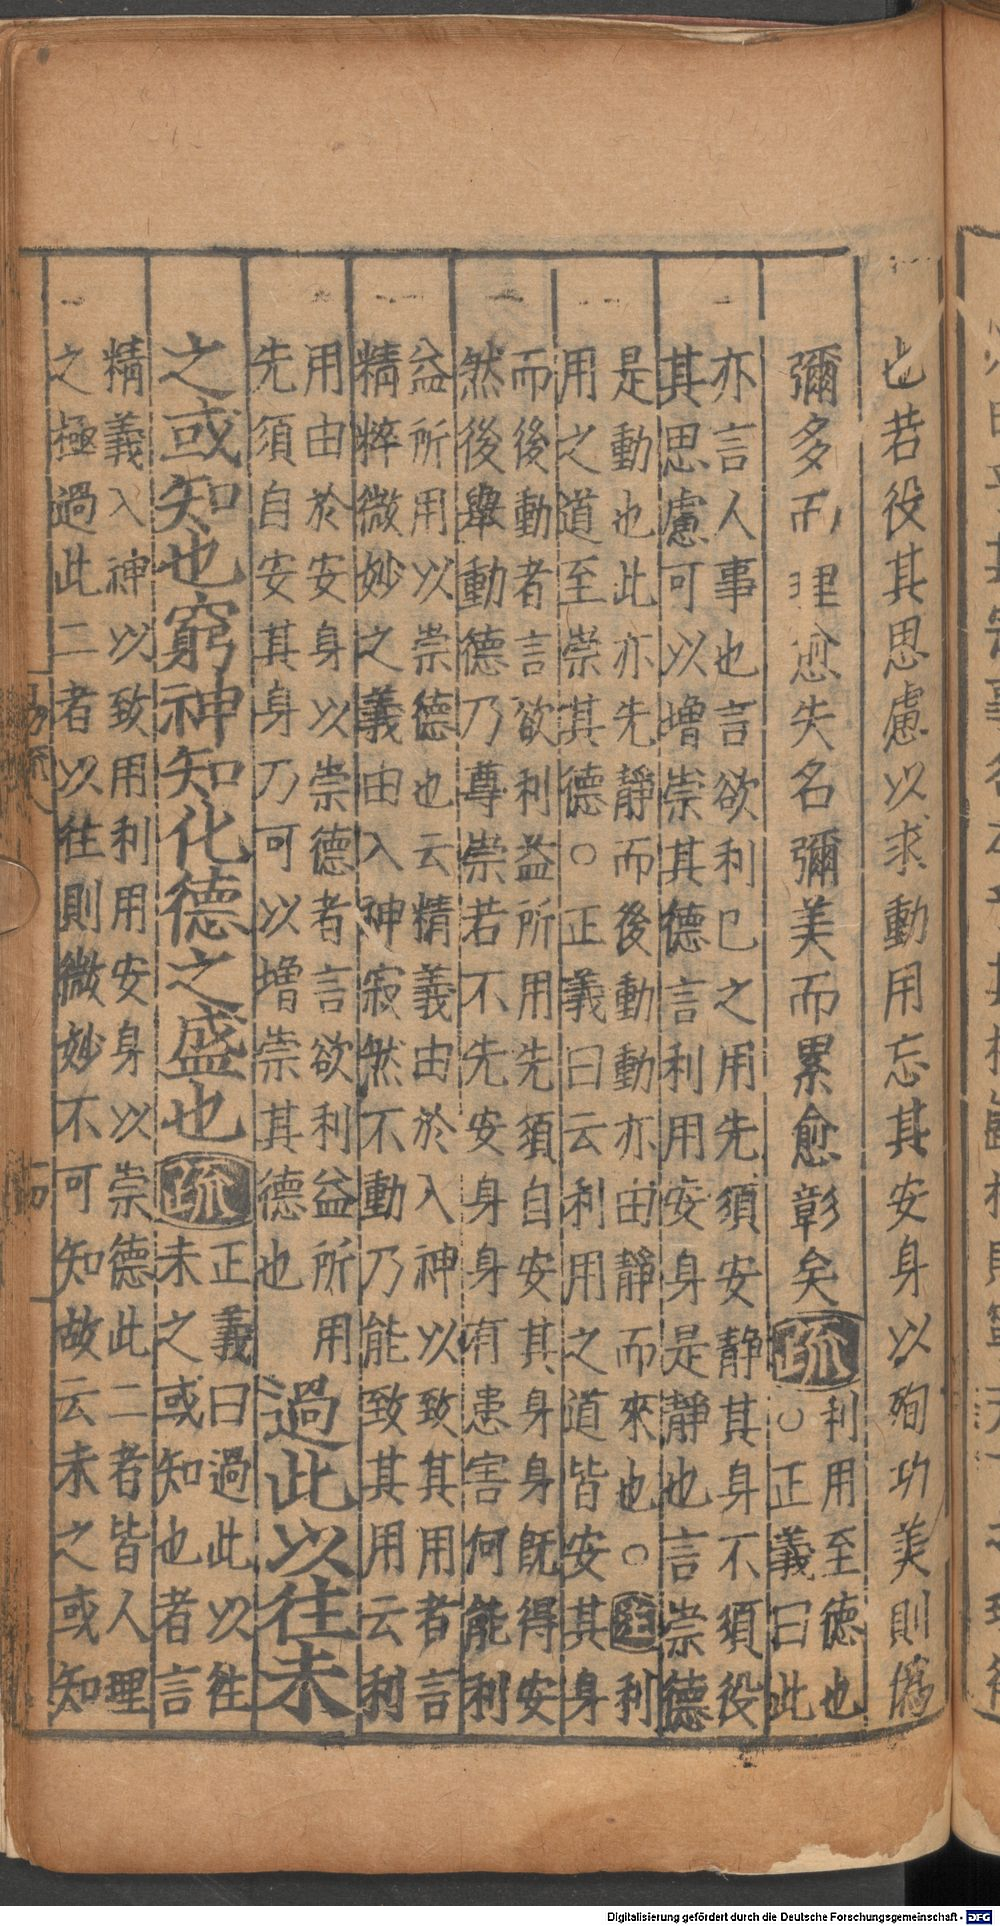 也若役其思慮以求動用忘其安身以殉功美則僞
彌多而理愈失名彌美而累愈彰矣疏
利用至德也
○正義曰此
亦言人事也言欲利己之用先須安靜其身不須役
其思慮可以增崇其德言利用安身是靜也言崇德
是動也此亦先靜而後動動亦由靜而來也○註利
用之道至崇其德○正義曰云利用之道皆安其身
而後動者言欲利益所用先須自安其身身既得安
然後舉動德乃尊崇若不先安身身有患害何能利
益所用以崇德也云精義由於入神以致其用者言
精粹微妙之義由入神寂然不動乃能致其用云利
用由於安身以崇德者言欲利益所用
先須自安其身乃可以增崇其德也
過此以往未
之或知也窮神知化德之盛也疏
正義曰過此以往
未之或知也者言
精義入神以致用利用安身以崇德此二者皆人理
之極過此二者以往則微妙不可知故云未之或知
Digitalisierung gefördert durch die Deutsche Forschungsgemeinschaft - DFG